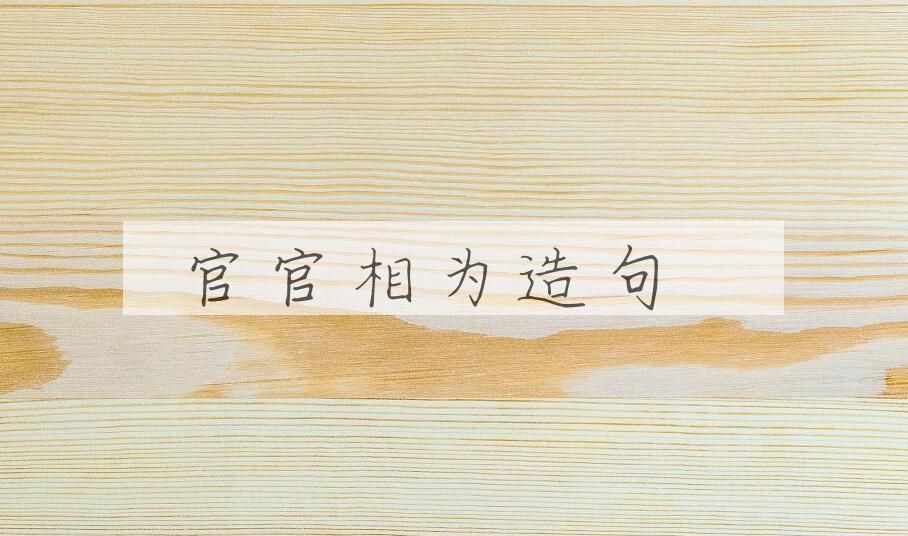 官官相为造句